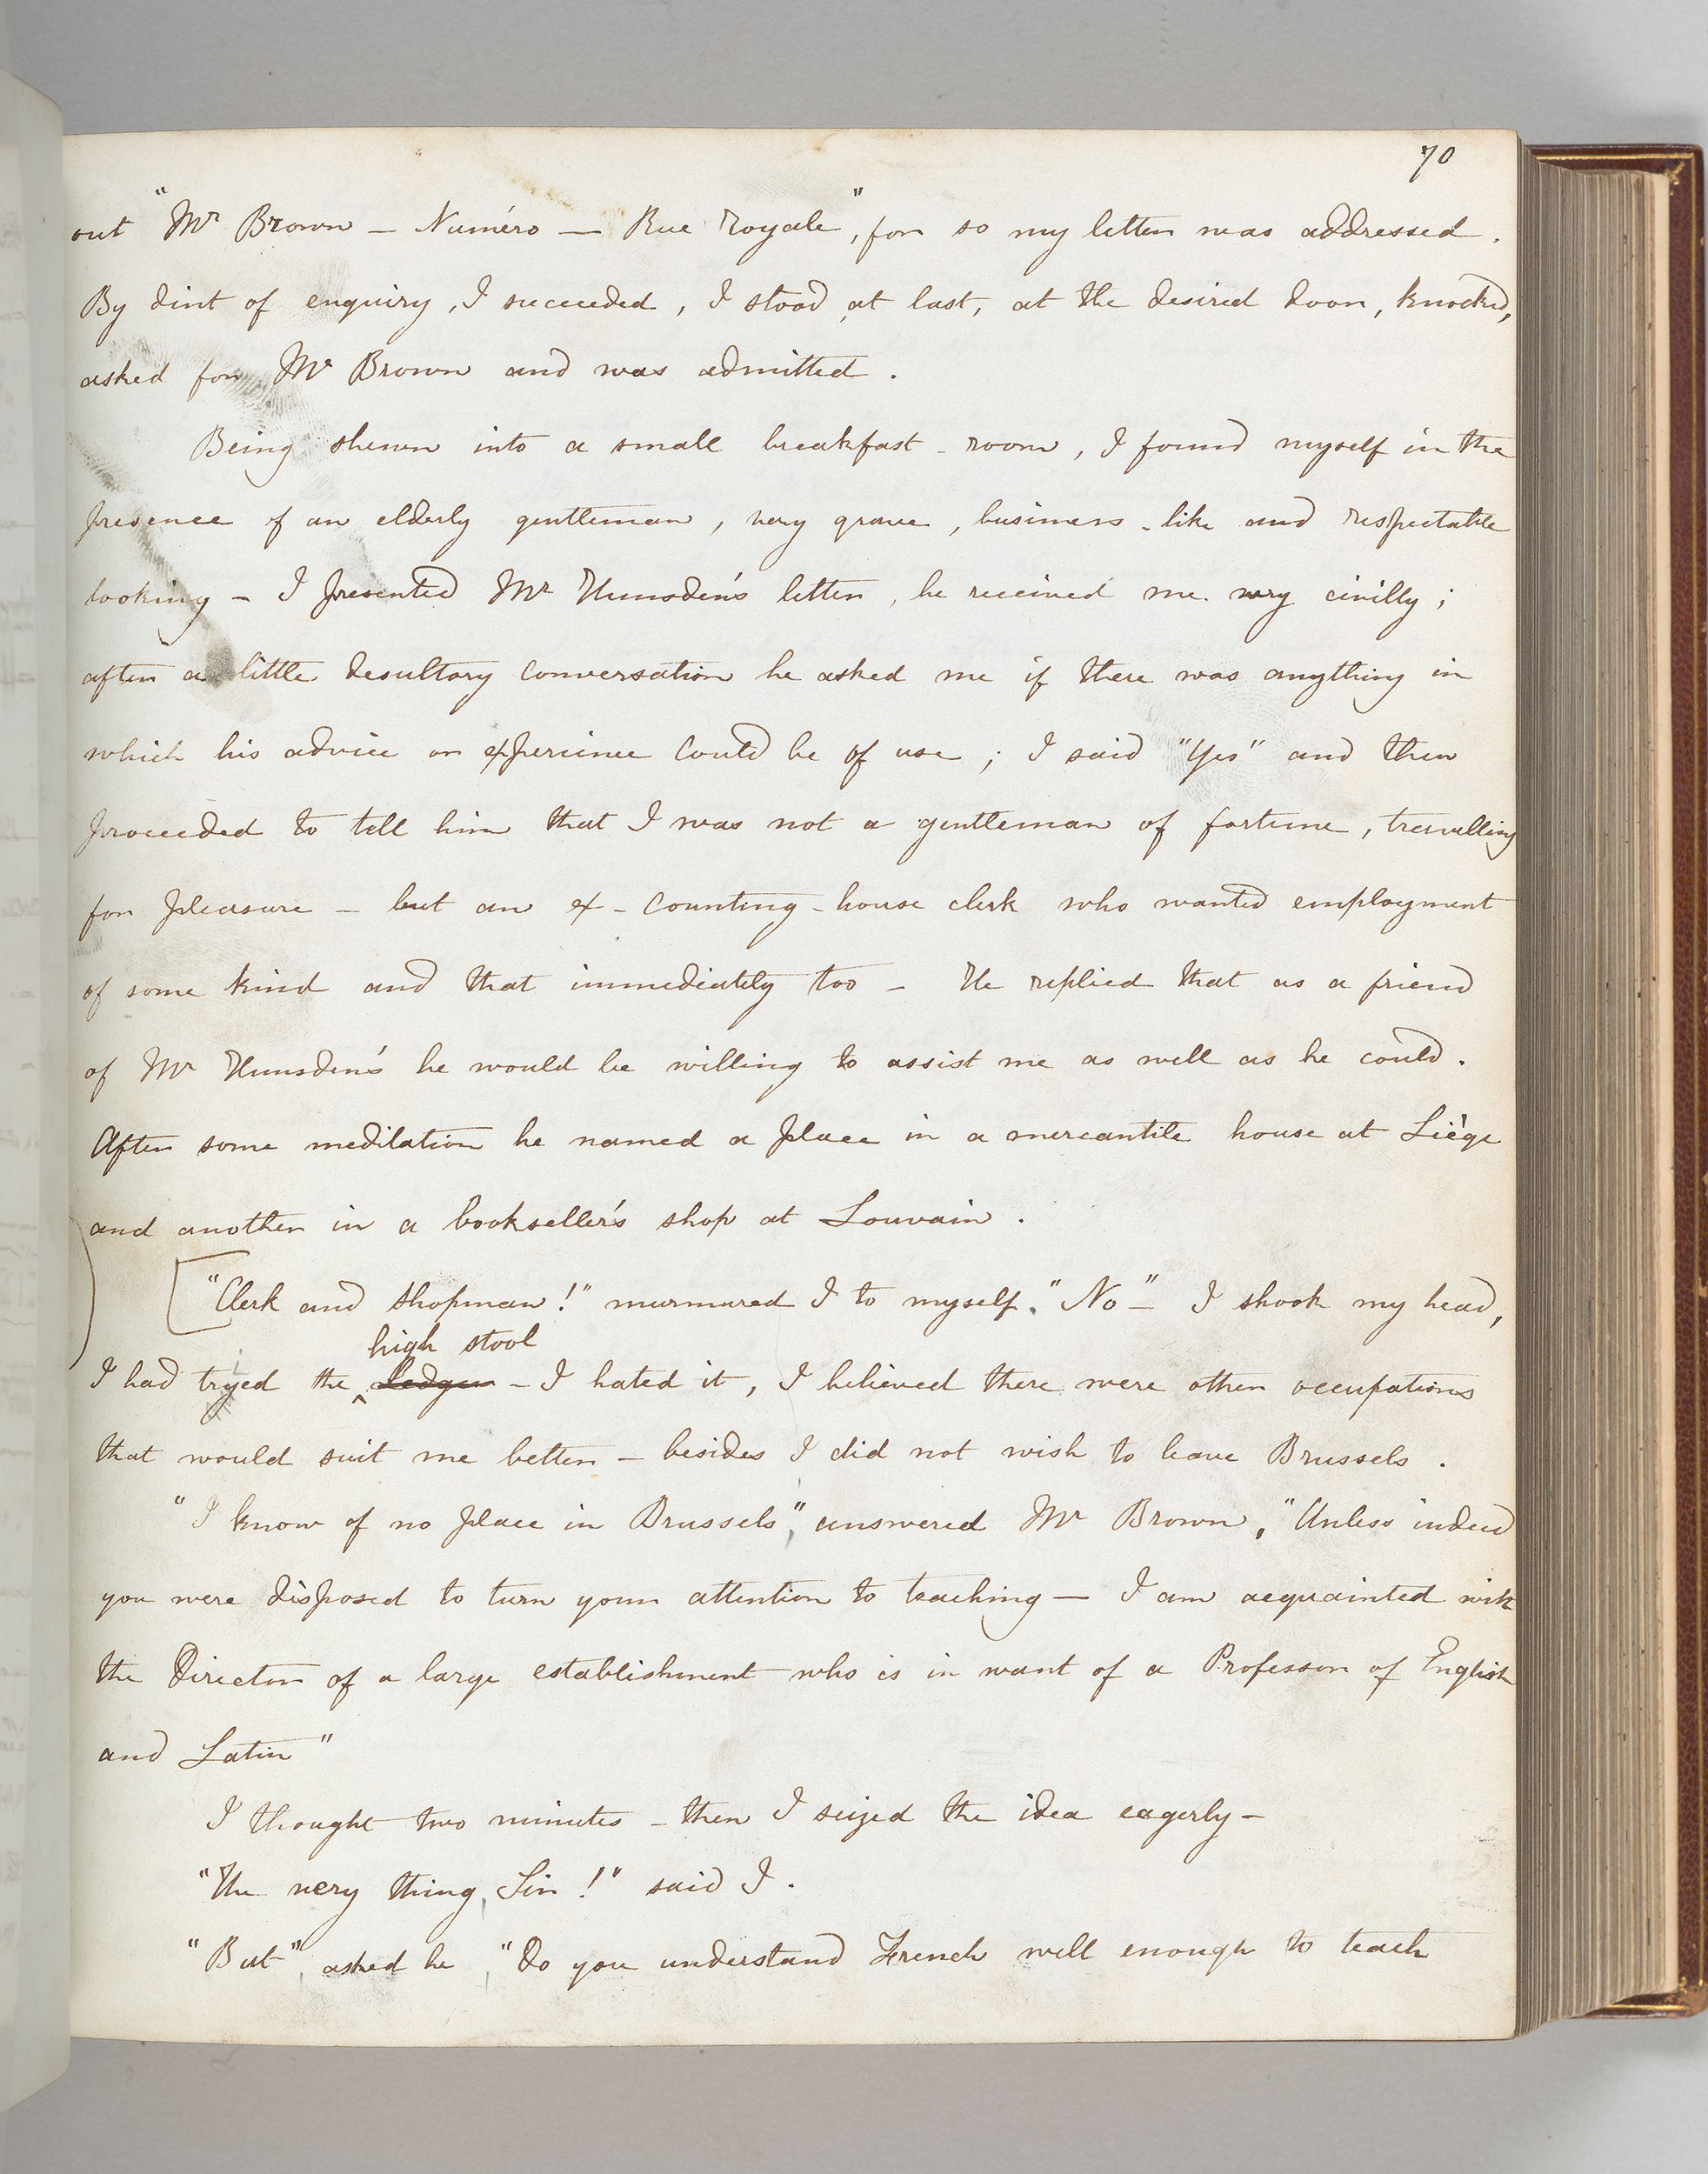 70
out "Mr Brown — Numéro — Rue Royale", for so my letter was addressed.
By dint of enquiry, I succeeded, I stood, at last, at the desired door, knocked,
asked for Mr Brown and was admitted.
Being shewn into a small breakfast-room, I found myself in the
presence of an elderly gentleman, very grave, business-like and respectable
looking — I presented Mr Hunsden's letter, he received me very civilly;
after a little desultory conversation he asked me if there was anything in
which his advice or experience could be of use; I said "Yes" and then
proceeded to tell him that I was not a gentleman of fortune, travelling
for pleasure — but an ex-counting-house clerk who wanted employment
of some kind and that immediately too — He replied that as a friend
of Mr Hunsden's he would be willing to assist me as well as he could.
After some meditation he named a place in a mercantile house at Liège
and another in a bookseller's shop at Louvain.
["Clerk and shopman!" murmured I to myself. "No —" I shook my head,
high stool
I had tryed the ^ ledger — I hated it, I believed there were other occupations
that would suit me better — besides I did not wish to leave Brussels.
"I know of no place in Brussels", answered Mr Brown, "Unless indeed
you were disposed to turn your attention to teaching — I am acquainted with
the Director of a large establishment who is in want of a Professor of English
and Latin"
I thought two minutes — then I seized the idea eagerly —
"The very thing, Sir!" said I.
"But", asked he, "Do you understand French well enough to teach